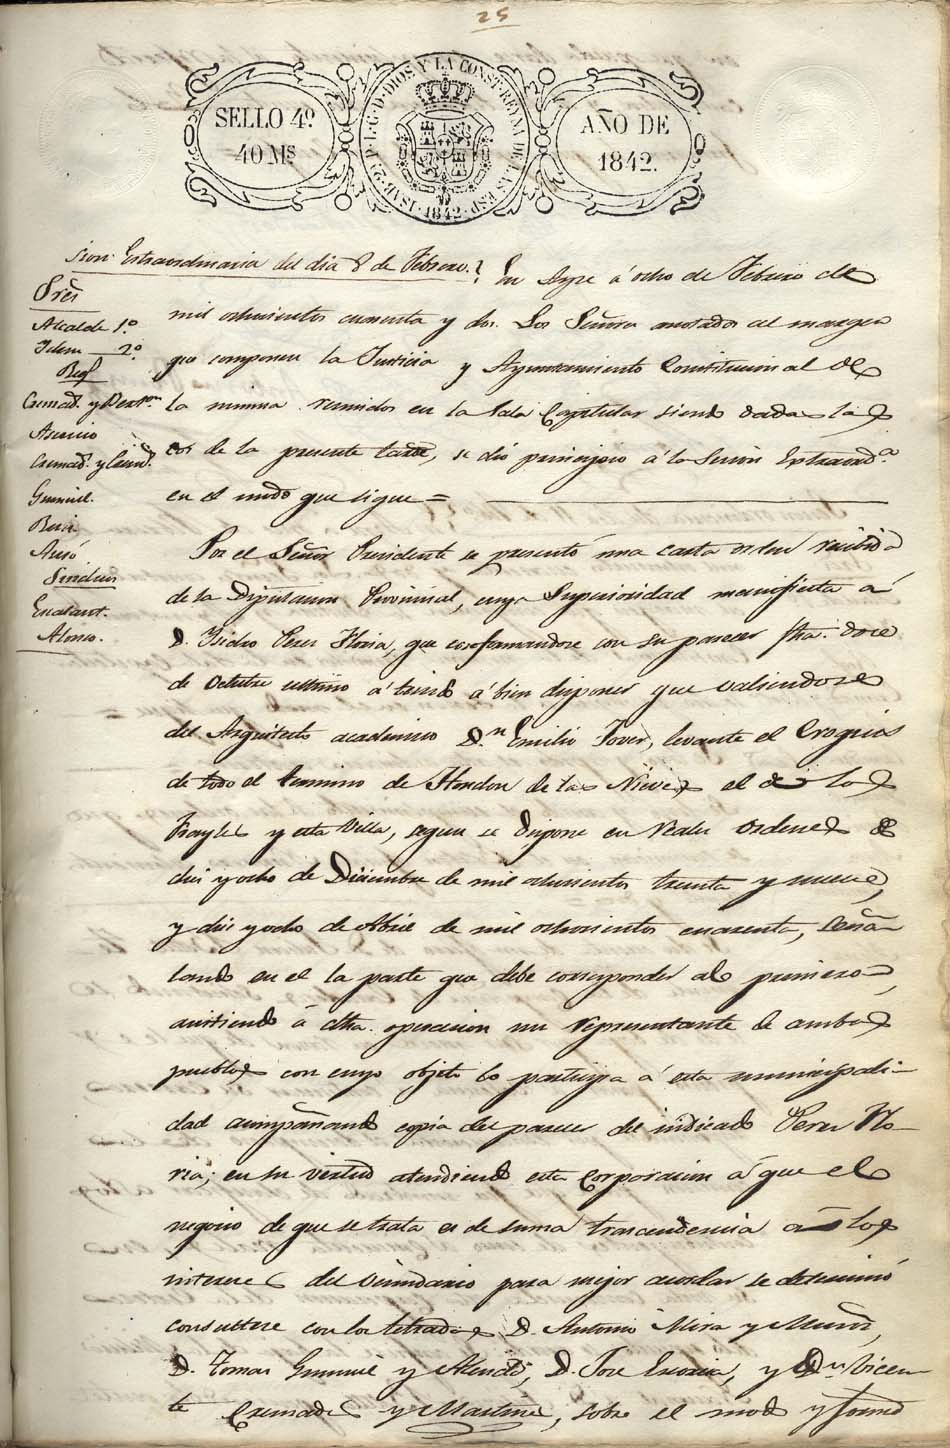 25
SELLO 4º
40 Ms
ISAB. 2ª P. L. G. D. DIOS Y LA CONST. REYNA DE LAS ESP.
1842
AÑO DE
1842.
sion Extraordinaria del dia 8 de Febrero.
En Aspe á ocho de Febrero de
mil ochocientos cuarenta y dos. Los Señores anotados al margen
que componen la Justicia y Ayuntamiento Constitucional de
la misma reunidos en la Sala Capitular siendo dadas las
de la presente tarde, se dió principio á la Sesion Extraord.ª
en el modo que sigue =
Sres
Alcalde 1.º
Idem 2.º
Reg
Cremad. y
Asencio
Cremad. y
Gumiel.
Sindicos
Alonso.
Por el Señor Presidente se presentó una carta orden recibida
de la Diputacion Provincial, cuya Superioridad manifiesta á
D. Isidro Perez Floria, que conformandose con su parecer fha. doce
de Octubre ultimo á tenido á bien disponer que valiendose
del Arquitecto academico D.n Emilio Jover, levante el Croquis
de todo el termino de Hondon de las Nieves el de los
Frayles y esta Villa, segun se dispone en Reales ordenes de
diez y ocho de Diciembre de mil ochocientos treinta y nueve,
y diez y ocho de Abril de mil ochocientos cuarenta, seña-
lando en el la parte que debe corresponder al primero,
asistiendo á dha. operacion un representante de ambos
pueblos con cuyo objeto lo participa á esta municipali-
dad acompañando copia del parecer del indicado Perez Flo-
ria; en su virtud atendiendo esta Corporacion á que el
negocio de que se trata es de suma trascendencia á los
intereses del vecindario para mejor acordar se determinó
consultese con los letrados D. Antonio Mira y
D. Tomas Gumiel y D. Jose y D.n Vicen-
te Cremades y Martinez, sobre el modo y forma